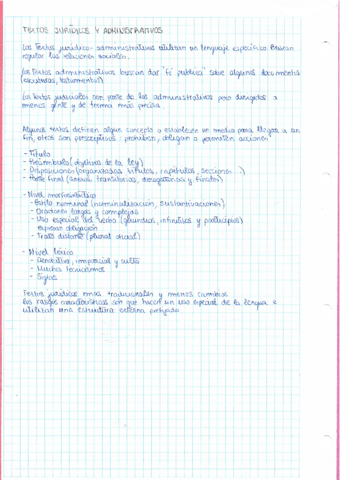 TEXTOS JURÍDICOS Y ADMINISTRATIVOS
Los textos jurídico-administrativos utilizan un lenguaje específico. Buscan
regular las relaciones sociales.
Los textos administrativos buscan dar "fe pública" sobre algunos documentos
(escrituras, testamentos).
Los textos judiciales son parte de los administrativos pero dirigidos a
menos gente y de forma más precisa.
Algunos textos definen algún concepto o establecen un medio para llegar a un
fin, otros son prescriptivos: prohíben, obligan o permiten acciones.
- Título
- Preámbulo (objetivos de la ley)
- Disposiciones (organizadas títulos, capítulos, secciones...)
- Parte final (anexos, transitorias, derogatorias y finales)
- Nivel morfosintáctico
- Estilo nominal (nominalización, sustantivaciones)
- Oraciones largas y complejas
- Uso especial del verbo (gerundios, infinitivos y participios)
expresar obligación
- Trato distante (plural oficial)
- Nivel léxico
- Denotativo, impersonal y culto
- Muchos tecnicismos
- Siglas
Textos jurídicos más tradicionales y menos cambios
Los rasgos característicos son que hacen un uso especial de la lengua e
utilizan una estructura externa prefijada